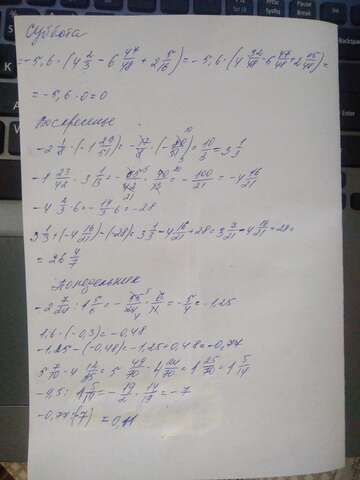 Суббота
= -5,6 · (4 2/3 - 6 47/48 + 2 5/16) = -5,6 · (4 32/48 - 6 47/48 + 2 15/48) =
= -5,6 · 0 = 0
Воскресенье
-2 1/8 · (-1 29/51) = -17/8 · (-80/51) = 10/3 = 3 1/3
-1 23/42 · 3 1/13 = -65/42 · 40/13 = -100/21 = -4 16/21
-4 2/3 · 6 = -14/3 · 6 = -28
3 1/3 + (-4 16/21) - (-28) = 3 1/3 - 4 16/21 + 28 = 3 7/21 - 4 16/21 + 28 =
= 26 4/7
Понедельник
= -5/4 = -1,25
1,6 · (-0,3) = -0,48
-1,25 - (-0,48) = -1,25 + 0,48 = -0,77
5 49/70 - 4 24/70 = 1 25/70 = 1 5/14
-9,5 : 1 5/14 = -19/2 · 14/19 = -7
-0,77 : (-7) = 0,11